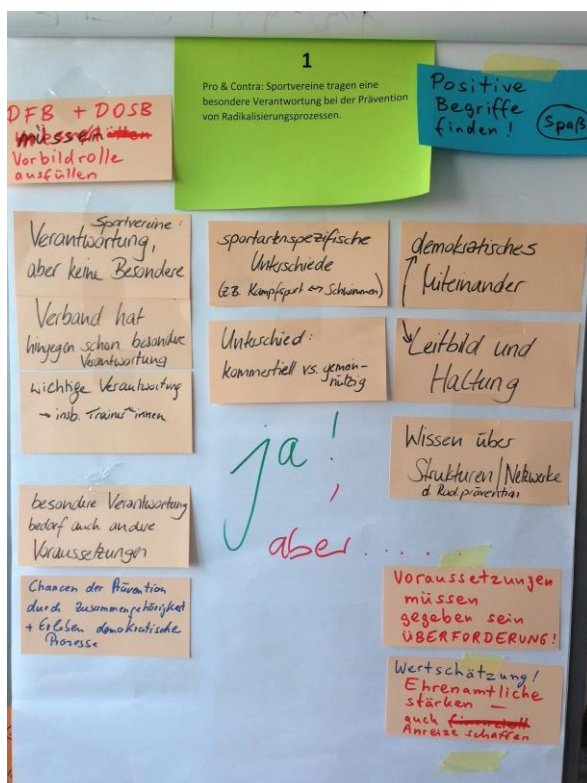 1
Pro & Contra: Sportvereine tragen eine
besondere Verantwortung bei der Prävention
von Radikalisierungsprozessen.
DFB + DOSB
müssen
Vorbildrolle
ausfüllen
Positive
Begriffe
finden!
Spaß
Sportvereine:
Verantwortung,
aber keine Besondere
Verband hat
hingegen schon besondere
Verantwortung
wichtige Verantwortung
→ insb. Trainer*innen
besondere Verantwortung
bedarf auch andere
Voraussetzungen
Chancen der Prävention
durch Zusammengehörigkeit
+ Erleben demokratische
Prozesse
sportartenspezifische
Unterschiede
(z.B. Kampfsport ↔ Schwimmen)
Unterschied:
kommerziell vs. gemein-
nützig
ja!
, aber....
demokratisches
Miteinander
Leitbild und
Haltung
Wissen über
Strukturen/Netzwerke
d. Rad.prävention
Voraussetzungen
müssen
gegeben sein
ÜBERFORDERUNG!
Wertschätzung!
Ehrenamtliche
stärken –
auch finanziell
Anreize schaffen